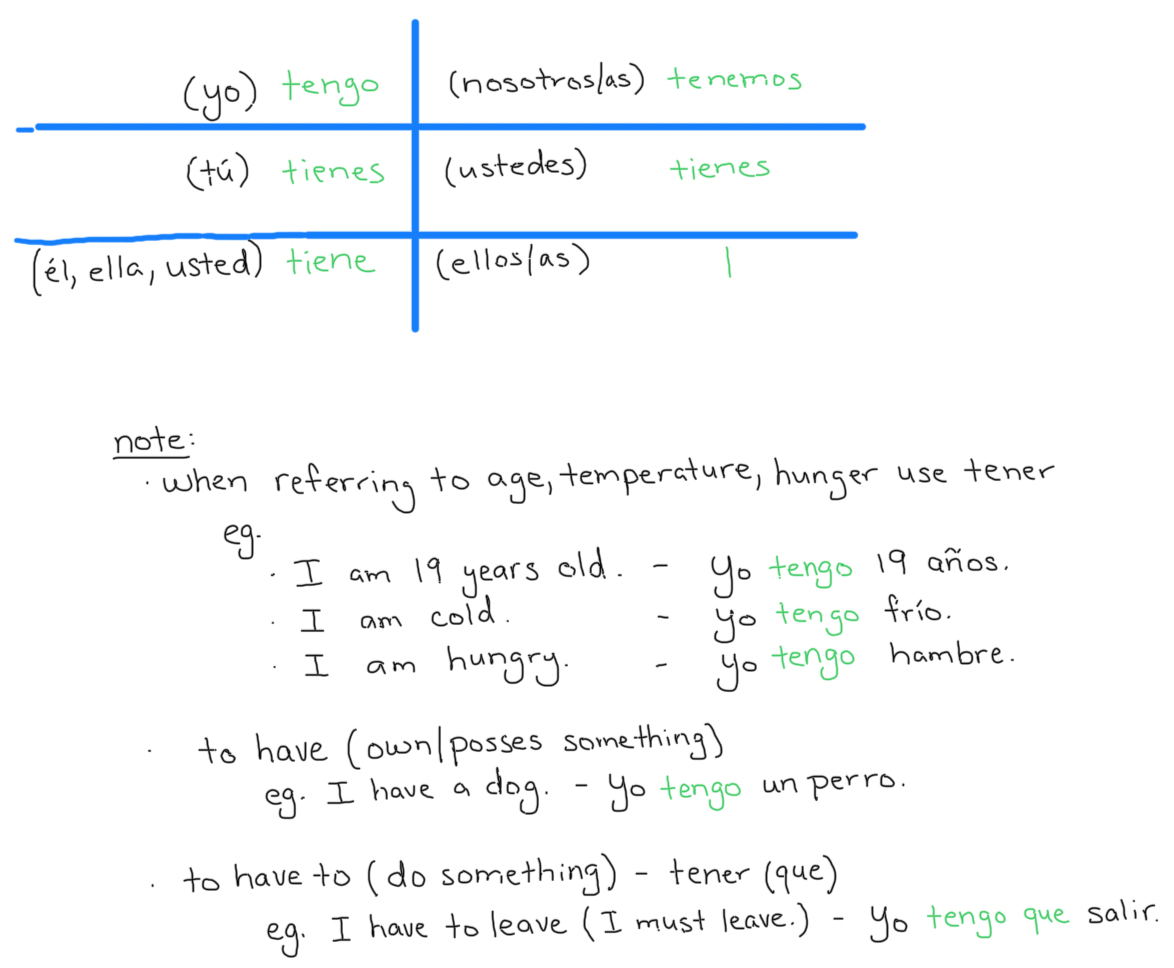 (yo) tengo (nosotros/as) tenemos
(tú) tienes (ustedes) tienes
(él, ella, usted) tiene (ellos/as) |
note:
· when referring to age, temperature, hunger use tener
eg.
· I am 19 years old. - Yo tengo 19 años.
· I am cold. - yo tengo frío.
· I am hungry. - yo tengo hambre.
· to have (own/posses something)
eg. I have a dog. - Yo tengo un perro.
· to have to (do something) - tener (que)
eg. I have to leave (I must leave.) - Yo tengo que salir.